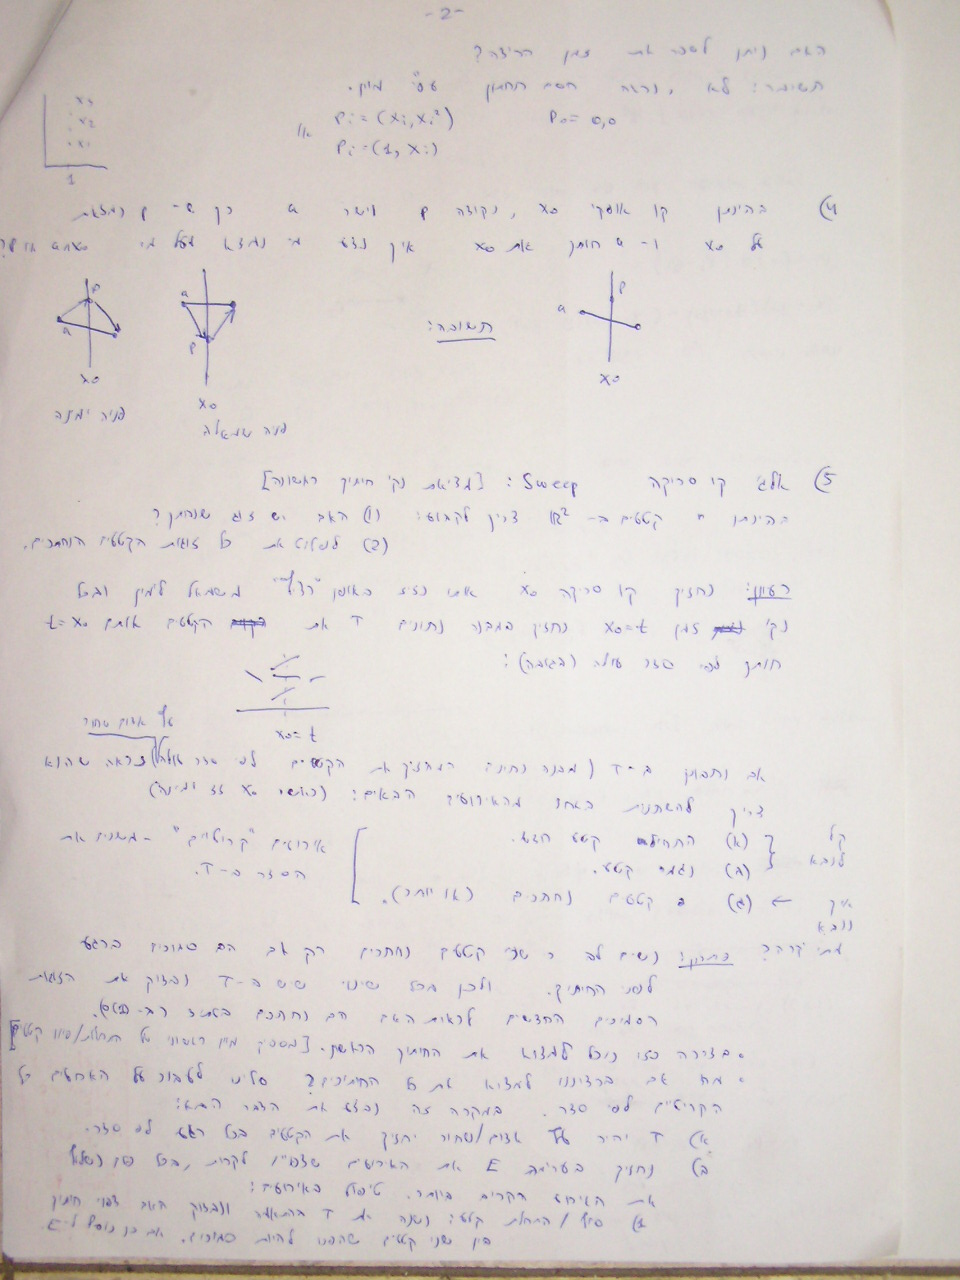 -2-
האם ניתן לשפר את זמן הריצה?
תשובה: לא, נראה חסם תחתון ע"י מיון.
Pi = (xi, xi²) P0 = 0,0
או
Pi = (1, xi)
x3
x2
x1
1
4) בהינתן קו אופקי x0, נקודה p וישר a כך ש- p נמצאת
על x0 ו- a חותך את x0 איך נדע מי נמצא מעל מי
a p x0
a p x0
תשובה:
a p x0
פניה ימנה
פניה שמאלה
5) אלג' קו סריקה Sweep: [מציאת נק' חיתוך ראשונה]
בהינתן n קטעים ב- R² צריך לקבוע: (1) האם יש זוג שנחתך?
(2) את כל זוגות הקטעים הנחתכים.
רעיון: נחזיק קו סריקה x0 אותו נזיז באופן "רציף" משמאל לימין ובכל
נק' זמן x0=t נחזיק במבנה נתונים T את הקטעים אותם x0=t
חותך לפי סדר עולה (בגובה):
x0=t
עץ אדום שחור
אם נתבונן ב-T (מבנה נתונים המחזיק את הקטעים לפי סדר) נראה שהוא
צריך להשתנות באחד מהאירועים הבאים: (כאשר x0 זז ימינה)
קל לנבא
(א) התחיל קטע חדש.
(ב) נגמר קטע.
איך ננבא ← (ג) 2 קטעים נחתכים (או יותר).
אירועים "קריטיים" - משנים את
הסדר ב-T.
מתי יקרה? פתרון: נשים לב ש שני קטעים נחתכים רק אם הם סמוכים ברגע
לפני החיתוך. ולכן בכל שינוי שיש ב-T נבדוק את הזוגות
הסמוכים החדשים לראות האם הם נחתכים
• בצורה כזו נוכל למצוא את החיתוך הראשון. [מספיק מיון ראשוני של התחלות/סיומי קטעים]
• מה אם ברצוננו למצוא את כל החיתוכים? עלינו לעבור על הארועים
הקריטיים לפי סדר. במקרה זה נבצע את הדבר הבא:
א) T יהיה עץ אדום/שחור יחזיק את הקטעים בכל רגע לפי סדר.
ב) נחזיק בערימה E את האירועים שצפויים לקרות, בכל פעם נשלוף
את האירוע הקרוב ביותר. טיפול באירועים:
סיום / התחלת קטע: נשנה את T בהתאם ונבדוק האם צפוי חיתוך
בין שני קטעים שהפכו להיות סמוכים. אם כן נוסיף ל-E.